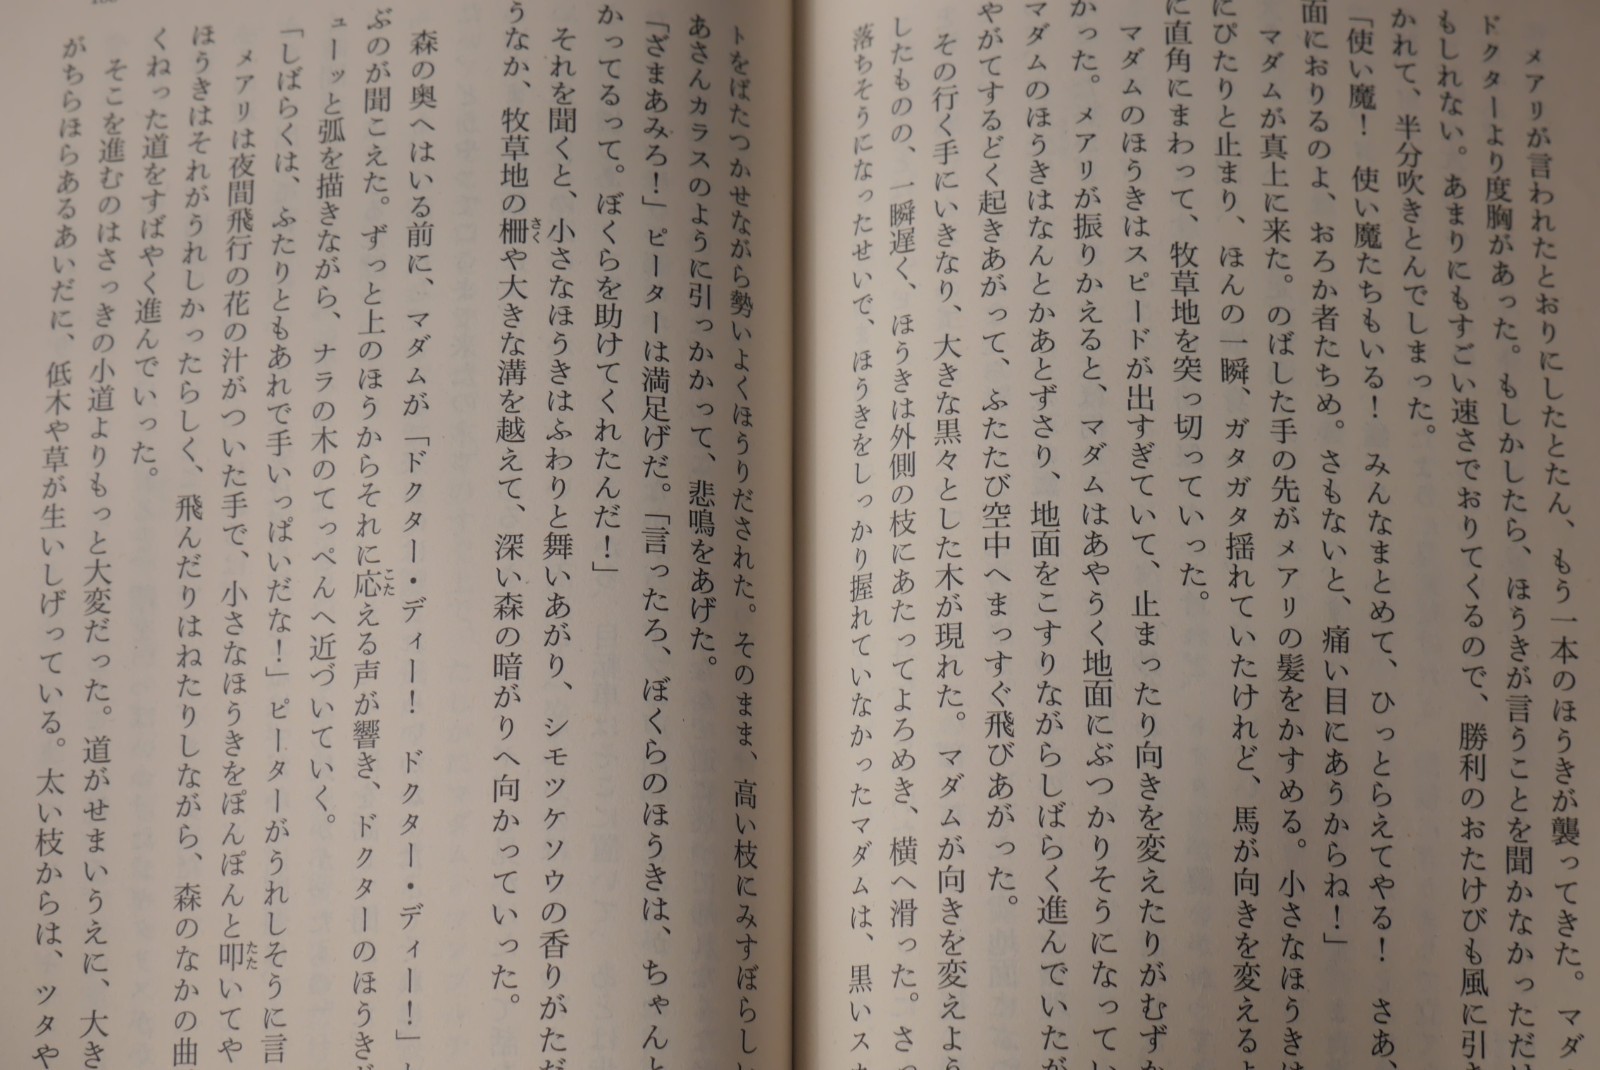 メアリが言われたとおりにしたとたん、もう一本のほうきが襲ってきた。マダ
ドクターより度胸があった。もしかしたら、ほうきが言うことを聞かなかっただけ
もしれない。あまりにもすごい速さでおりてくるので、勝利のおたけびも風に引き
かれて、半分吹きとんでしまった。
「使い魔！　使い魔たちもいる！　みんなまとめて、ひっとらえてやる！　さあ、
面におりるのよ、おろか者たちめ。さもないと、痛い目にあうからね！」
マダムが真上に来た。のばした手の先がメアリの髪をかすめる。小さなほうきは
にぴたりと止まり、ほんの一瞬、ガタガタ揺れていたけれど、馬が向きを変えるよ
に直角にまわって、牧草地を突っ切っていった。
マダムのほうきはスピードが出すぎていて、止まったり向きを変えたりがむずか
かった。メアリが振りかえると、マダムはあやうく地面にぶつかりそうになってい
マダムのほうきはなんとかあとずさり、地面をこすりながらしばらく進んでいたが
やがてするどく起きあがって、ふたたび空中へまっすぐ飛びあがった。
その行く手にいきなり、大きな黒々とした木が現れた。マダムが向きを変えよう
したものの、一瞬遅く、ほうきは外側の枝にあたってよろめき、横へ滑った。さっ
落ちそうになったせいで、ほうきをしっかり握れていなかったマダムは、黒いスカ
トをばたつかせながら勢いよくほうりだされた。そのまま、高い枝にみすぼらしい
あさんカラスのように引っかかって、悲鳴をあげた。
「ざまあみろ！」ピーターは満足げだ。「言ったろ、ぼくらのほうきは、ちゃんと
かってるって。ぼくらを助けてくれたんだ！」
それを聞くと、小さなほうきはふわりと舞いあがり、シモツケソウの香りがただ
うなか、牧草地の柵や大きな溝を越えて、深い森の暗がりへ向かっていった。
さく
森の奥へはいる前に、マダムが「ドクター・ディー！　ドクター・ディー！」
ぶのが聞こえた。ずっと上のほうからそれに応える声が響き、ドクターのほうきが
こた
ューッと弧を描きながら、ナラの木のてっぺんへ近づいていく。
「しばらくは、ふたりともあれで手いっぱいだな！」ピーターがうれしそうに言
メアリは夜間飛行の花の汁がついた手で、小さなほうきをぽんぽんと叩いてや
たた
ほうきはそれがうれしかったらしく、飛んだりはねたりしながら、森のなかの曲
くねった道をすばやく進んでいった。
そこを進むのはさっきの小道よりもっと大変だった。道がせまいうえに、大き
がちらほらあるあいだに、低木や草が生いしげっている。太い枝からは、ツタや